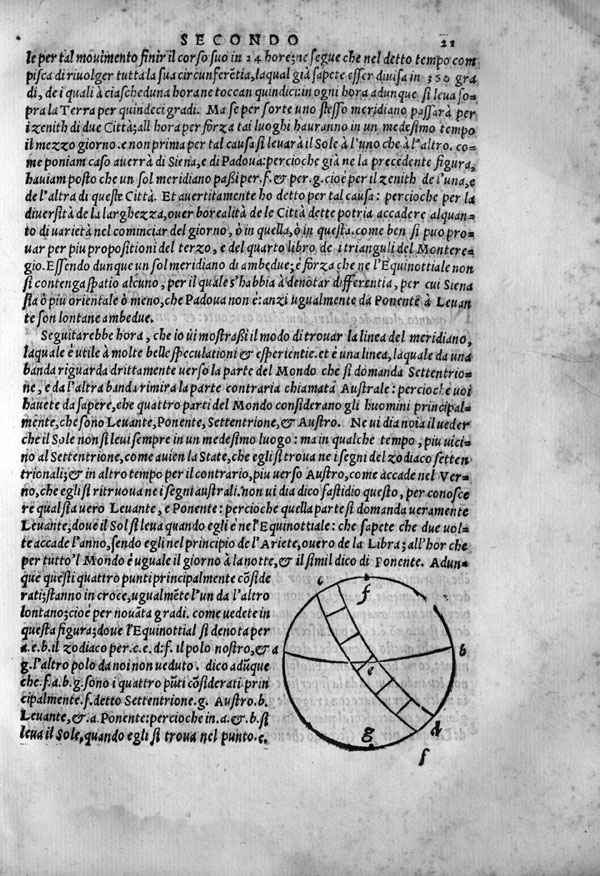 SECONDO 21
le per tal movimento finir il corso suo in 24 hore; ne segue che nel detto tempo com
pisca di rivolger tutta la sua circunferētia, laqual già sapete esser divisa in 360 gra
di, de i quali à ciascheduna hora ne toccan quindici: in ogni hora adunque si leva so
pra la Terra per quindeci gradi. Ma se per sorte uno stesso meridiano passarà per
i zenith di due Città; all hora per forza tai luoghi hauranno in un medesimo tempo
il mezzo giorno. e non prima per tal causa si levarà il Sole à l'uno che à l'altro. co-
me poniam caso averrà di Siena, e di Padoua: percioche già ne la precedente figura,
haviam posto che un sol meridiano passi per .f. & per .g. cioè per il zenith de l'una, e
de l'altra di queste Città. Et avertitamente ho detto per tal causa: percioche per la
diversità de la larghezza, over borealità de le Città dette potria accadere alquan-
to di varietà nel cominciar del giorno, ò in quella, ò in questa. come ben si puo pro-
var per piu propositioni del terzo, e del quarto libro de i trianguli del Montere-
gio. Essendo dunque un sol meridiano di ambedue; è forza che ne l'Equinottiale non
si contenga spatio alcuno, per il quale s'habbia à denotar differentia, per cui Siena
sta ò piu orientale ò meno, che Padoua non è: anzi ugualmente da Ponente à Levan
te son lontane ambedue.
Seguitarebbe hora, che io ùi mostrassi il modo di trovar la linea del meridiano,
laquale è utile à molte belle speculationi & esperientie. et è una linea, laquale da una
banda riguarda drittamente verso la parte del Mondo che si domanda Settentrio-
ne, e da l'altra banda rimira la parte contraria chiamata Australe: percioche voi
havete da sapere, che quattro parti del Mondo considerano gli huomini principal-
mente, che sono Levante, Ponente, Settentrione, & Austro. Ne vi dia noia il veder
che il Sole non si levi sempre in un medesimo luogo: ma in qualche tempo, piu vici-
no al Settentrione, come avien la State, che egli si trova ne i segni del zodiaco setten
trionali; & in altro tempo per il contrario, piu verso Austro, come accade nel Ver-
no, che egli si ritruova ne i segni australi. non vi dia dico fastidio questo, per conosce
re qual sia vero Levante, e Ponente: percioche quella parte si domanda veramente
Levante, dove il Sol si leva quando egli è ne l'Equinottiale: che sapete che due vol-
te accade l'anno, sendo egli nel principio de l'Ariete, overo de la Libra; all'hor che
per tutto'l Mondo è uguale il giorno à la notte, & il simil dico di Ponente. Adun-
que questi quattro punti principalmente cōside
rati; stanno in croce, ugualmēte l'un da l'altro
lontano; cioè per novāta gradi. come vedete in
questa figura; dove l'Equinottial si denota per
a.e.b. il zodiaco per .c.e.d: f. il polo nostro, &
g. l'altro polo da noi non veduto. dico adūque
che .f.a.b.g. sono i quattro pūti cōsiderati prin
cipalmente .f. detto Settentrione .g. Austro .b.
Levante, & .a. Ponente: percioche in .a. & .b. si
leva il Sole, quando egli si trova nel punto .e.
c
f
a
b
e
g
d
f